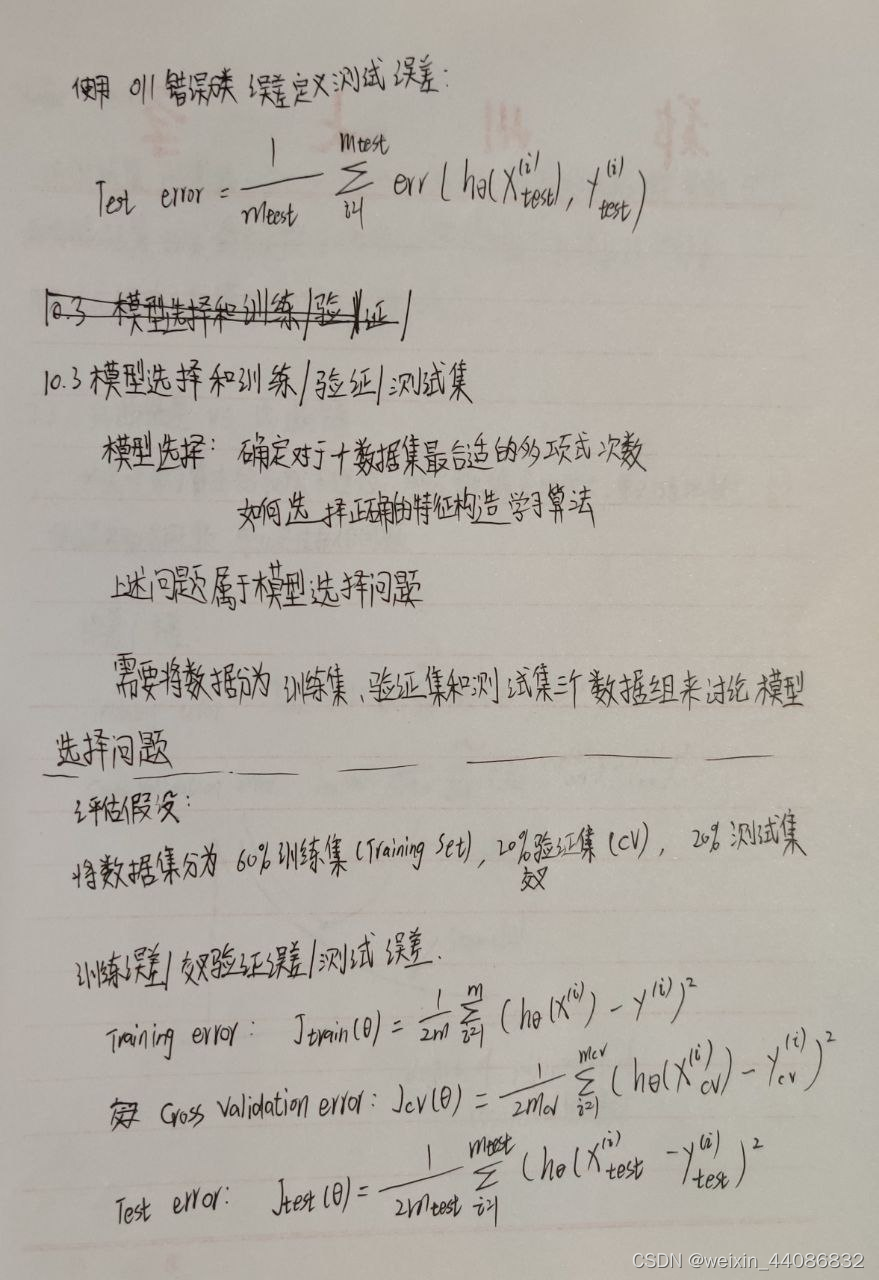 使用 0/1 错误分类 误差定义测试误差:
Test error = \frac{1}{m_{test}} \sum_{i=1}^{m_{test}} err(h_θ(x_{test}^{(i)}), y_{test}^{(i)})
10.3 模型选择和训练/验证/
10.3 模型选择和训练/验证/测试集
模型选择: 确定对于个数据集最合适的多项式次数
如何选择正确的特征构造学习算法
上述问题属于模型选择问题
需要将数据分为训练集、验证集和测试集三个数据组来讨论模型
选择问题
评估假设:
将数据集分为 60%训练集(Training Set), 20%交叉验证集(CV), 20%测试集
训练误差/交叉验证误差/测试误差.
Training error: J_{train}(θ) = \frac{1}{2m} \sum_{i=1}^{m} (h_θ(x^{(i)}) - y^{(i)})^2
Cross Validation error: J_{cv}(θ) = \frac{1}{2m_{cv}} \sum_{i=1}^{m_{cv}} (h_θ(x_{cv}^{(i)}) - y_{cv}^{(i)})^2
Test error: J_{test}(θ) = \frac{1}{2m_{test}} \sum_{i=1}^{m_{test}} (h_θ(x_{test}^{(i)} - y_{test}^{(i)})^2
CSDN @weixin_44086832